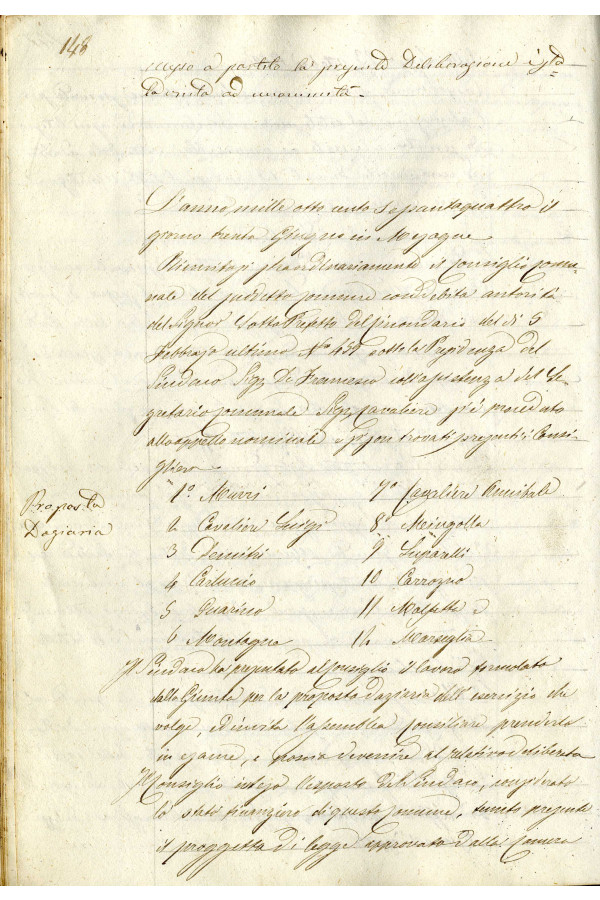 148
messo a partito la presente Deliberazione è sta=
ta vinta ad unanimità.
L'anno mille otto cento Sepantaquattro il
giorno trenta Giugno in Mesagne
Riunitosi straordinariamente il Consiglio comu=
nale del suddetto comune con debita autorità
del Signor Sotto Prefetto del Circondario del dì 5
Febbrajo ultimo N° 454 sotto la Presidenza del
Sindaco Sig. De Francesco coll'assistenza del Se
gretario comunale Sig. Cavaliere si è proceduto
all'appello nominale e si sono trovati presenti i Consi
glieri
Proposta
Daziaria
1° Murri
7° Cavaliere Annibale
2 Cavaliere Luigi
8° Mingolla
3 Demitri
9
4 Carluccio
10 Carrozzo
5 Guarino
11 Malfatti e
6 Montagna
12 Marseglia
Il Sindaco ha presentato al Consiglio il lavoro formolato
dalla Giunta per la proposta daziaria dell'esercizio che
volge, ed invita l'assemblea Consiliare prenderlo
in esame, e poscia devenire al relativo deliberato
Il Consiglio inteso l'esposto del Sindaco, considerato
lo stato finanziero di questo comune, tenuto presente
il proggetto di legge approvato dalla Camera